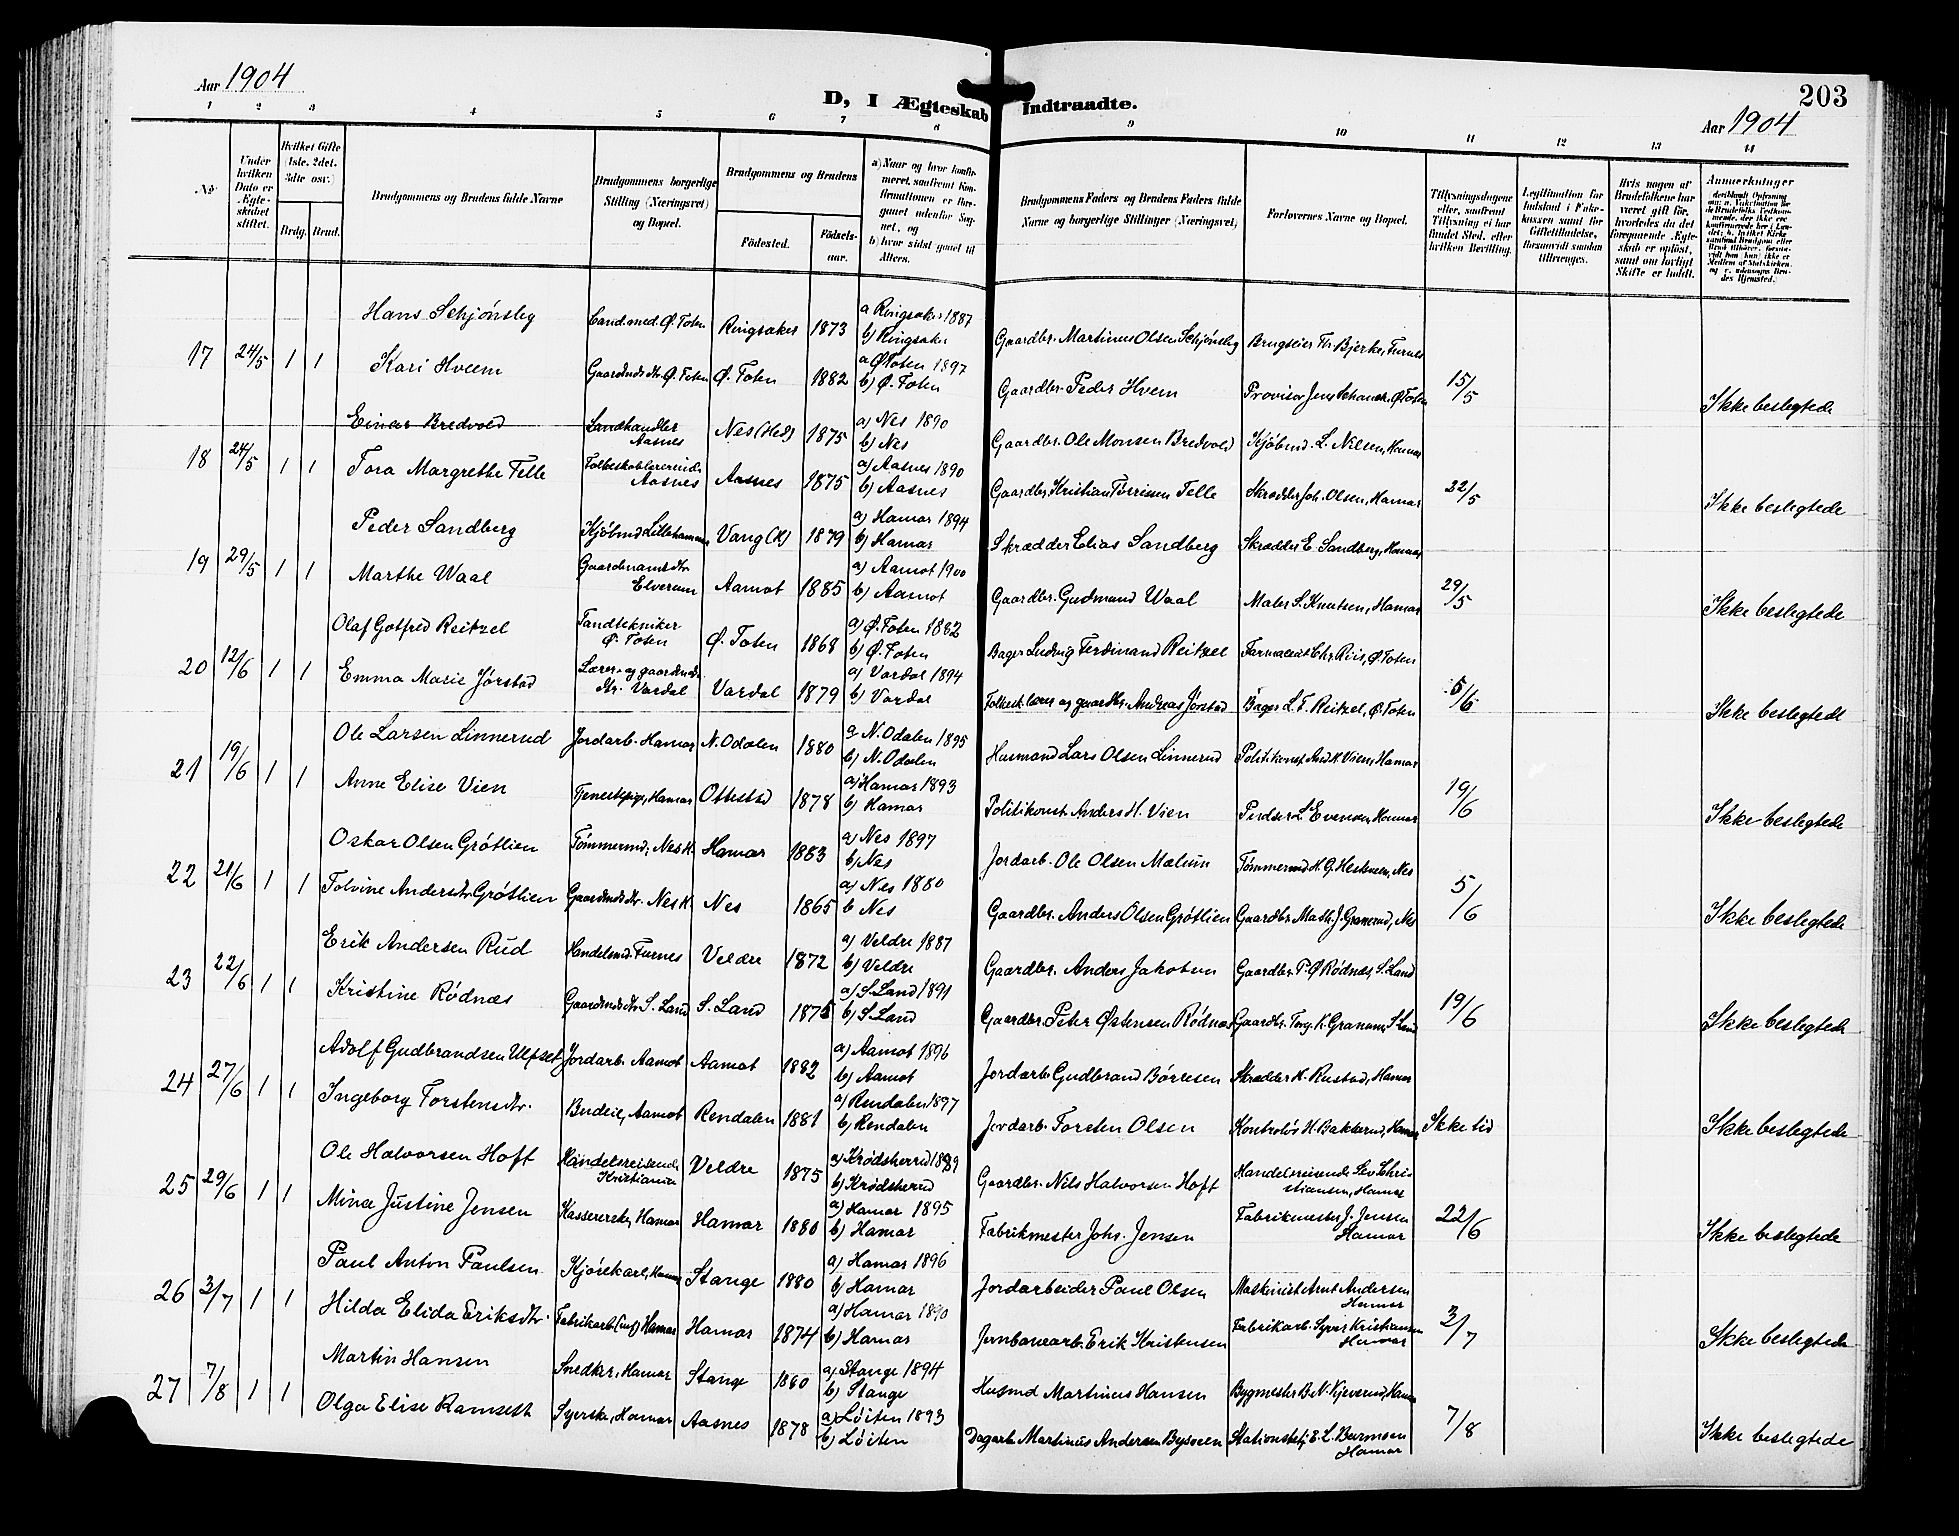 Aar 1904
D, I Ægteskab Indtraadte.
203
Aar 1904
1 2 3 4 5 6 7 8 9 10 11 12 13 14
No
Under hvilken Dato er Ægteskabet stiftet.
Hvilket Gifte (1ste. 2det. 3dte osv.)
Brdg. Brud.
Brudgommens og Brudens fulde Navne
Brudgommens borgerlige Stilling (Næringsvei) og Bopæl.
Brudgommens og Brudens
Fødested.
Fødselsaar.
a) Naar og hvor konfirmeret, samfremt Konfirmationen er foregaaet udenfor Sognet, og
b) hvor sidst gaaet til Alters.
Brudgommens Faders og Brudens Faders fulde Navne og borgerlige Stillinger (Næringsvei)
Forlovernes Navne og Bopæl.
Tillysningsdagene eller, samfremt Tillysning ei har fundet Sted, efter hvilken Bevilling.
Legitimation for Indskud i Enkekassen samt for Giftetilladelse, forsaavidt saadan tiltrænges.
Hvis nogen af Brudefolkene har været gift før, hvorledes da det foregaaende Ægteskab er opløst, samt om lovligt Skifte er holdt.
Anmærkninger
17 24/5 1 1
Hans Schjønsby Cand. med. Ø. Toten Ringsaker 1873 a Ringsaker 1887 b) Ringsaker Gaardbr. Martinus Olsen Schjønsby Brugseier Th. Bjerke, Furnes
Kari Hveem Gaardmdsdtr. Ø. Toten Ø. Toten 1882 a Ø Toten 1897 b) Ø. Toten Gaardbr. Peder Hveem Provisor Jens Schanck. Ø Toten 15/5 Ikke beslegtede
18 24/5 1 1
Einar Bredvold Landhandler Aasnes Nes (Hed) 1875 a) Nes 1890 b) Nes Gaardbr. Ole Monsen Bredvold Kjøbmd. L. Nilsen, Hamar
Tora Margrethe Felle Aasnes Aasnes 1875 a) Aasnes 1890 b) Aasnes Gaardbr. Kristian Felle Skrædder Joh. Olsen, Hamar 22/5 Ikke beslegtede
19 29/5 1 1
Peder Sandberg Kjøbmd Lillehammer Vang (H) 1879 a) Hamar 1894 b) Hamar Skrædder Elias Sandberg Skrædder E. Sandberg, Hamar
Marthe Waal Gaardmandsdtr Elverum Aamot 1885 a) Aamot 1900 b) Aamot Gaardbr. Gudmund Waal Maler S. Knutsen, Hamar 29/5 Ikke beslegtede
20 12/6 1 1
Olaf Gotfred Reitzel Tandtekniker Ø. Toten Ø. Toten 1868 a) Ø. Toten 1882 b) Ø. Toten Bager Ludvig Ferdinand Reitzel Farmaceut Chr. Riis, Ø. Toten
Emma Marie Jørstad Lærer- og gaardmds. dtr. Vardal Vardal 1879 a) Vardal 1894 b) Vardal Folkesk. lærer og gaardbr. Andreas Jørstad Bager L. F. Reitzel, Ø. Toten 5/6 Ikke beslegtede
21 19/6 1 1
Ole Larsen Linnerud Jordarb. Hamar N. Odalen 1880 a N. Odalen 1895 b) N. Odalen Husmand Lars Olsen Linnerud Politikonst. And. H. Vien, Hamar
Anne Elise Vien Tjenestepige, Hamar Ottestad 1878 a) Hamar 1893 b) Hamar Politikonst. Anders H. Vien L. Evensen, Hamar 19/6 Ikke beslegtede
22 21/6 1 1
Oskar Olsen Grøtlien Tømmermd, Nes H. Hamar 1883 a) Nes 1897 b) Nes Jordarb. Ole Olsen Tømmermd H. G. Nes
Tolvine Andersdtr Grøtlien Gaardmdsdtr. Nes H. Nes 1865 a) Nes 1880 b Nes Gaardbr. Anders Olsen Grøtlien Gaardbr Math. J. Granerud, Nes 5/6 Ikke beslegtede
23 22/6 1 1
Erik Andersen Rud Handelsmd. Furnes Veldre 1872 a) Veldre 1887 b) Veldre Gaardbr. Anders Jakobsen Gaardbr. P. Ø Rødnæs, S. Land
Kristine Rødnæs Gaardmdsdtr S. Land S. Land 1875 a) S. Land 1891 b) S. Land Gaardbr. Peter Østensen Rødnæs Gaardbr. S Land 19/6 Ikke beslegtede
24 27/6 1 1
Adolf Gudbrandsen Ulfset Jordarb. Aamot Aamot 1882 a) Aamot 1896 b) Aamot Jordarb Gudbrand Børresen Skrædder K. Rustad, Hamar
Ingeborg Torstensdtr. Budeie, Aamot Rendalen 1881 a) Rendalen 1897 b) Rendalen Jordarb. Torsten Olsen Kontrolør H. Bakkerud, Hamar Ikke tid Ikke beslegtede
25 29/6 1 1
Ole Halvorsen Hoft Handelsreisende Kristiania Veldre 1875 a) Krødsherred b) Krødsherred Gaardbr. Nils Halvorsen Hoft Handelsreisende Sev. Christiansen, Hamar
Mina Justine Jensen Kassererske, Hamar Hamar 1880 a) Hamar 1895 b) Hamar Fabrikmester Johs. Jensen Fabrikmester J. Jensen Hamar 22/6 Ikke beslegtede
26 3/7 1 1
Paul Anton Paulsen Kjørekarl, Hamar Stange 1880 a) Hamar 1896 b) Hamar Jordarbeider Paul Olsen Maskinist Arnt Andersen Hamar
Hilda Elida Eriksdtr. Fabrikarb. Hamar Hamar 1874 a) Hamar 1890 b) Hamar Jernbanearb. Erik Kristensen Fabrikarb. Syver Kristiansen Hamar 3/7 Ikke beslegtede
27 7/8 1 1
Martin Hansen Snedker, Hamar Stange 1880 a) Stange 1894 b) Stange Husmd Martinus Hansen Bygmester B. N. Kjeverud, Hamar
Olga Elise Ramseth Syerske, Hamar Aasnes 1878 a) Løiten 1893 b) Løiten Dagarb. Martinus Andersen Bysveen E. L. Hamar 7/8 Ikke beslegtede